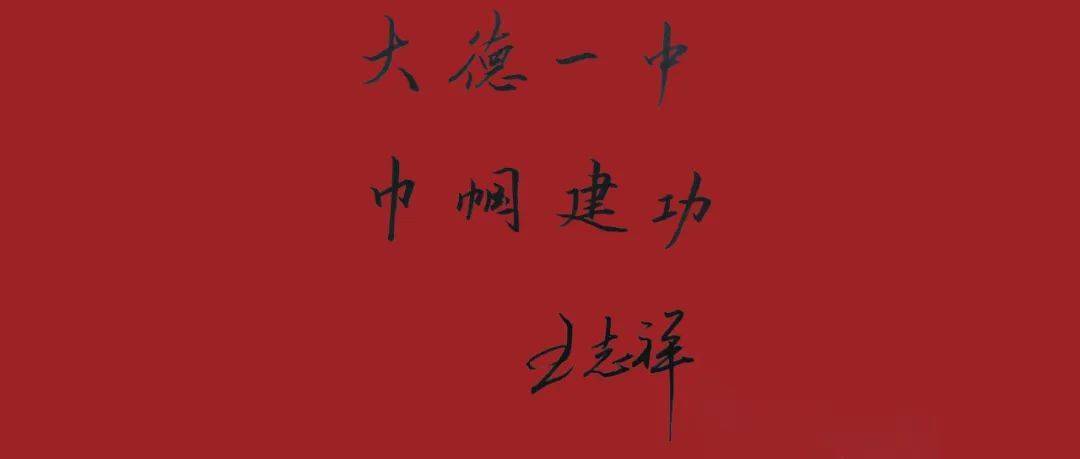 大德一中
巾帼建功
王志祥